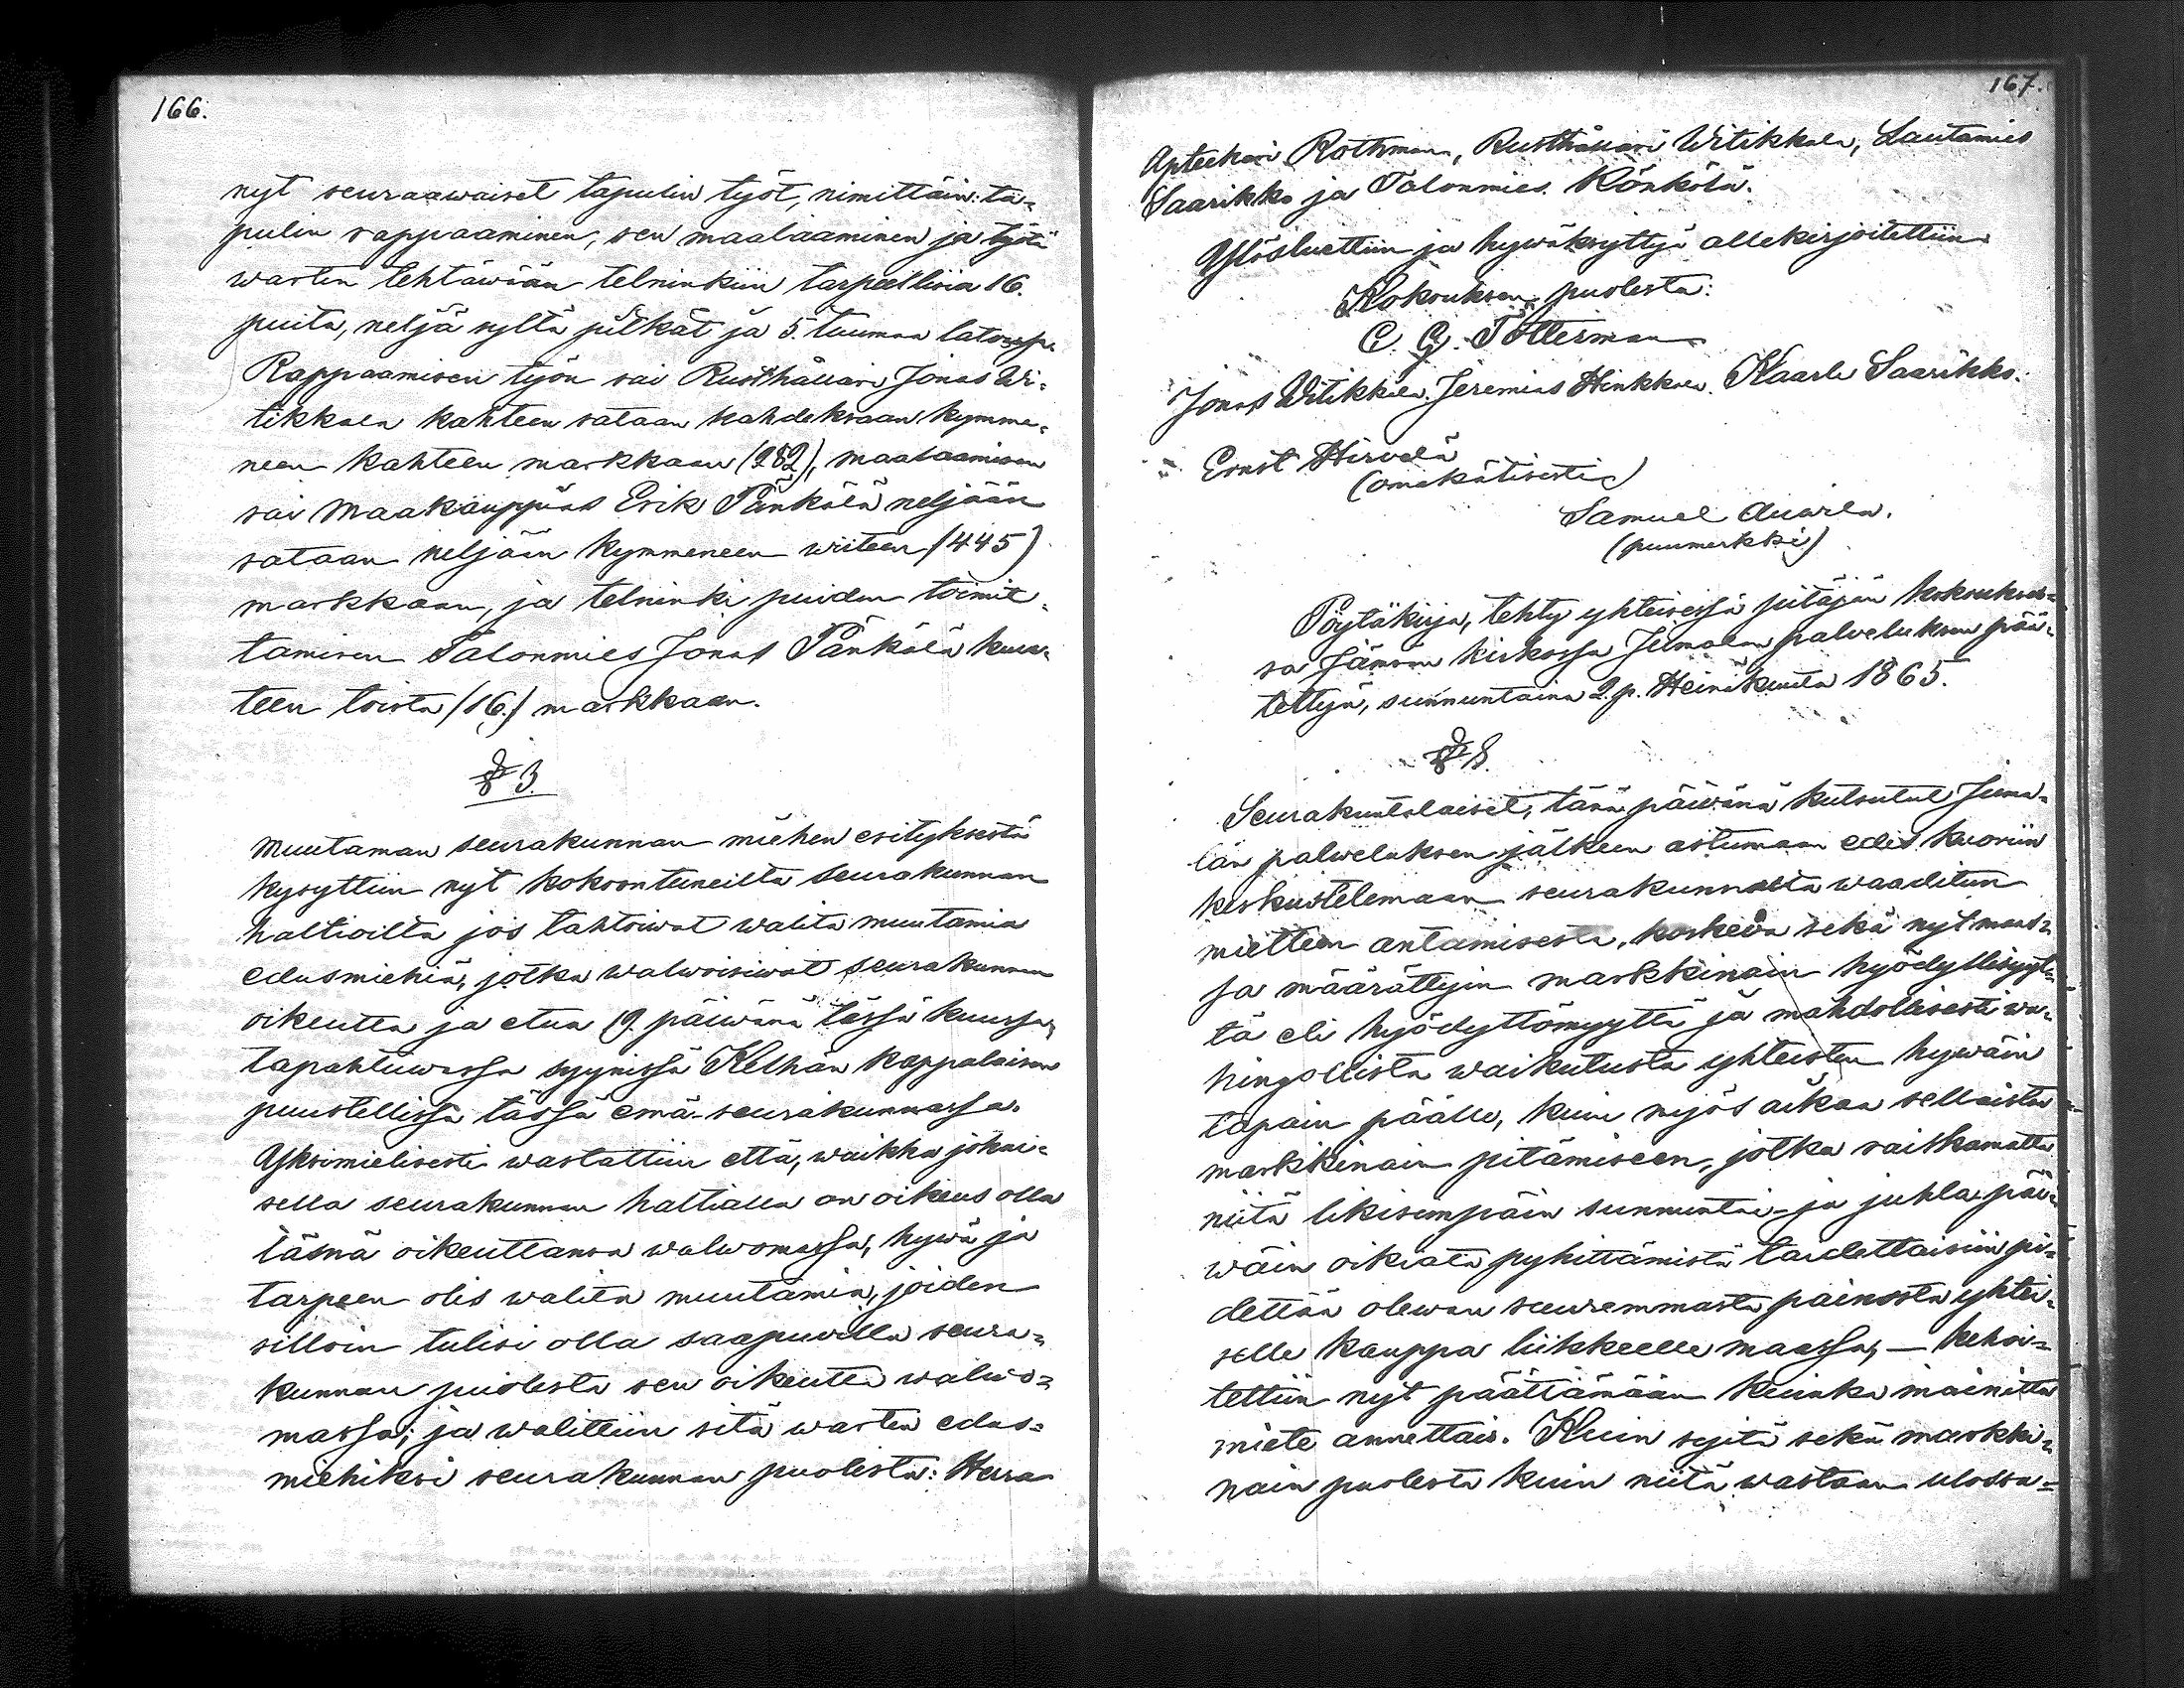 166.
nyt seuraawaiset tapulin työt, nimittäin: ta=
pulin rappaaminen, sen maalaaminen ja työtä
warten tehtäwään telninkiin tarpeellisia 16.
puita, neljä syltä pitkät ja 5. tuumaa
Rappaamisen työn sai Rusthållari Jonas Wi=
tikkala kahteen sataan kahdeksaan kymme=
neen kahteen markkaan (282), maalaamisen
sai Maakauppias Erik Pänkälä neljään
sataan neljään kymmeneen wiiteen (445)
markkaan, ja telninki puiden toimit=
tamisen Talonmies Jonas Pänkälä kuu=
teen toista (16.) markkaan.
§ 3.
Muutaman seurakunnan miehen esityksestä
kysyttiin nyt kokoontuneilta seurakunnan
haltioilta jos tahtoiwat walita muutamia
edusmiehiä, jotka walwoisiwat seurakunnan
oikeutta ja etua 19. päiwänä tässä kuussa,
tapahtuwassa syynissä Kelhän kappalaisen
puustellissa tässä emä-seurakunnassa.
Yksimielisesti wastattiin että, waikka jokai=
sella seurakunnan haltialla on oikeus olla
läsnä oikeuttansa walwomassa, hywä ja
tarpeen olis walita muutamia, joiden
silloin tulisi olla saapuwilla seura=
kunnan puolesta sen oikeutta walwo=
massa; ja walittiin sitä warten edus=
miehiksi seurakunnan puolesta: Herra
167.
Apteekari Rothman, Rusthållari Witikkala, Lautamies
Saarikko ja Talonmies Könkölä.
Ylösluettiin ja hywäksyttyä allekirjoitettiin
Kokouksen puolesta:
C. G. Tötterman
Jonas Witikkala. Jeremias Heikkala. Kaarle Saarikko.
Ernst Hirvelä
(omakätisesti)
Samuel
(puumerkki)
Pöytäkirja, tehty yhteisessä pitäjän kokoukses=
sa Jämsän kirkossa Jumalan palweluksen pää=
tettyä, sunnuntaina 2. p. Heinäkuuta 1865.
§ 8.
Seurakuntalaiset, tänä päiwänä kutsutut Juma=
lan palweluksen jälkeen astumaan edes kuoriin
keskustelemaan seurakunnalta waaditun
mietteen antamisesta, koskewa sekä nyt maas=
sa määrättyin markkinain hyödyllisyyt=
tä eli hyödyttömyyttä ja mahdollisesti wa=
hingollista waikutusta yhteisten hywäin
tapain päälle, kuin myös aikaa sellaisten
markkinain pitämiseen, jotka raiskamatta
niitä likisimpäin sunnuntai- ja juhla-päi=
wäin oikiata pyhittämistä taidettaisiin pi=
dettää olewan suuremmasta painosta yhtei=
selle kauppa liikkeelle maassa, — kehoi=
tettiin nyt päättämään kuinka mainittu
miete annettais. Kuin syitä sekä markki=
nain puolesta kuin niitä wastaan ulossa=